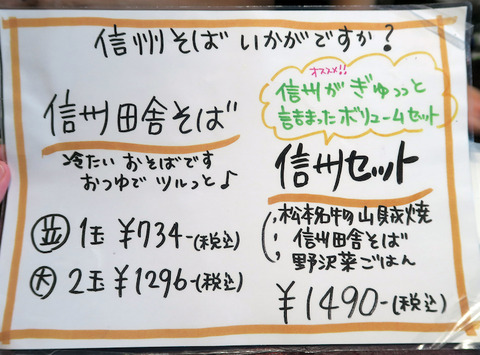 信州そばいかがですか?
信州田舎そば
冷たいおそばです
おつゆでツルっと♪
並 1玉 ¥734-(税込)
大 2玉 ¥1296-(税込)
オススメ!!
信州がぎゅっっと
詰まったボリュームセット
信州セット
松本名物の山賊焼
信州田舎そば
野沢菜ごはん
¥1490-(税込)